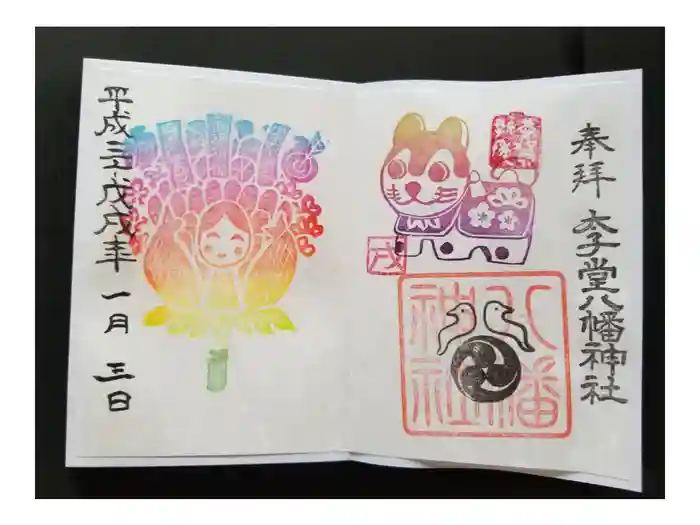 奉拝 太子堂八幡神社
八幡
神社
戌
平成三十戊戌年 一月 三日